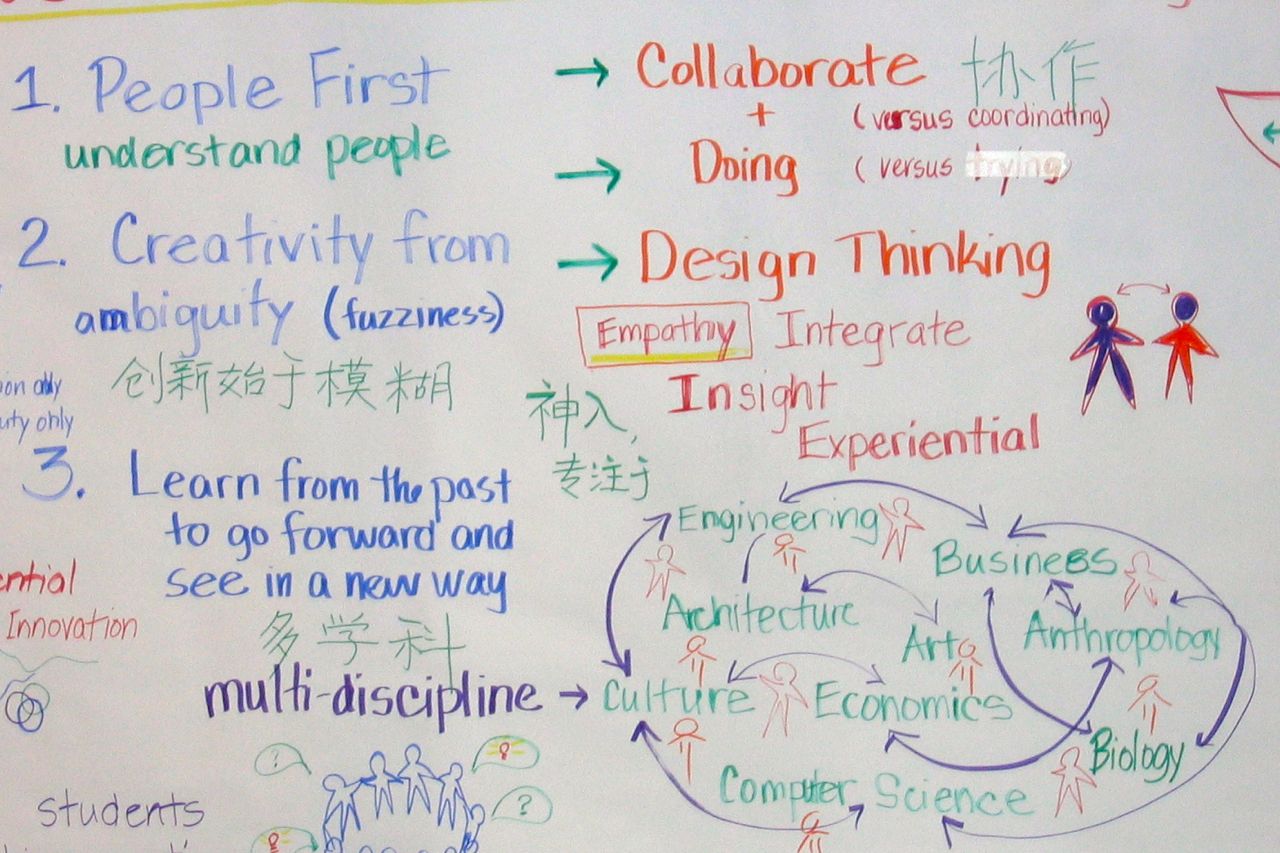 1. People First
understand people
→ Collaborate 协作
+ (versus coordinating)
→ Doing (versus trying)
2. Creativity from
ambiguity (fuzziness)
创新始于模糊
→ Design Thinking
Empathy Integrate
Insight
Experiential
神入,
专注于
only
only
3. Learn from the past
to go forward and
see in a new way
多学科
multi-discipline →
Innovation
Engineering
Business
Architecture
Art
Anthropology
Culture
Economics
Biology
Computer Science
?
?
students